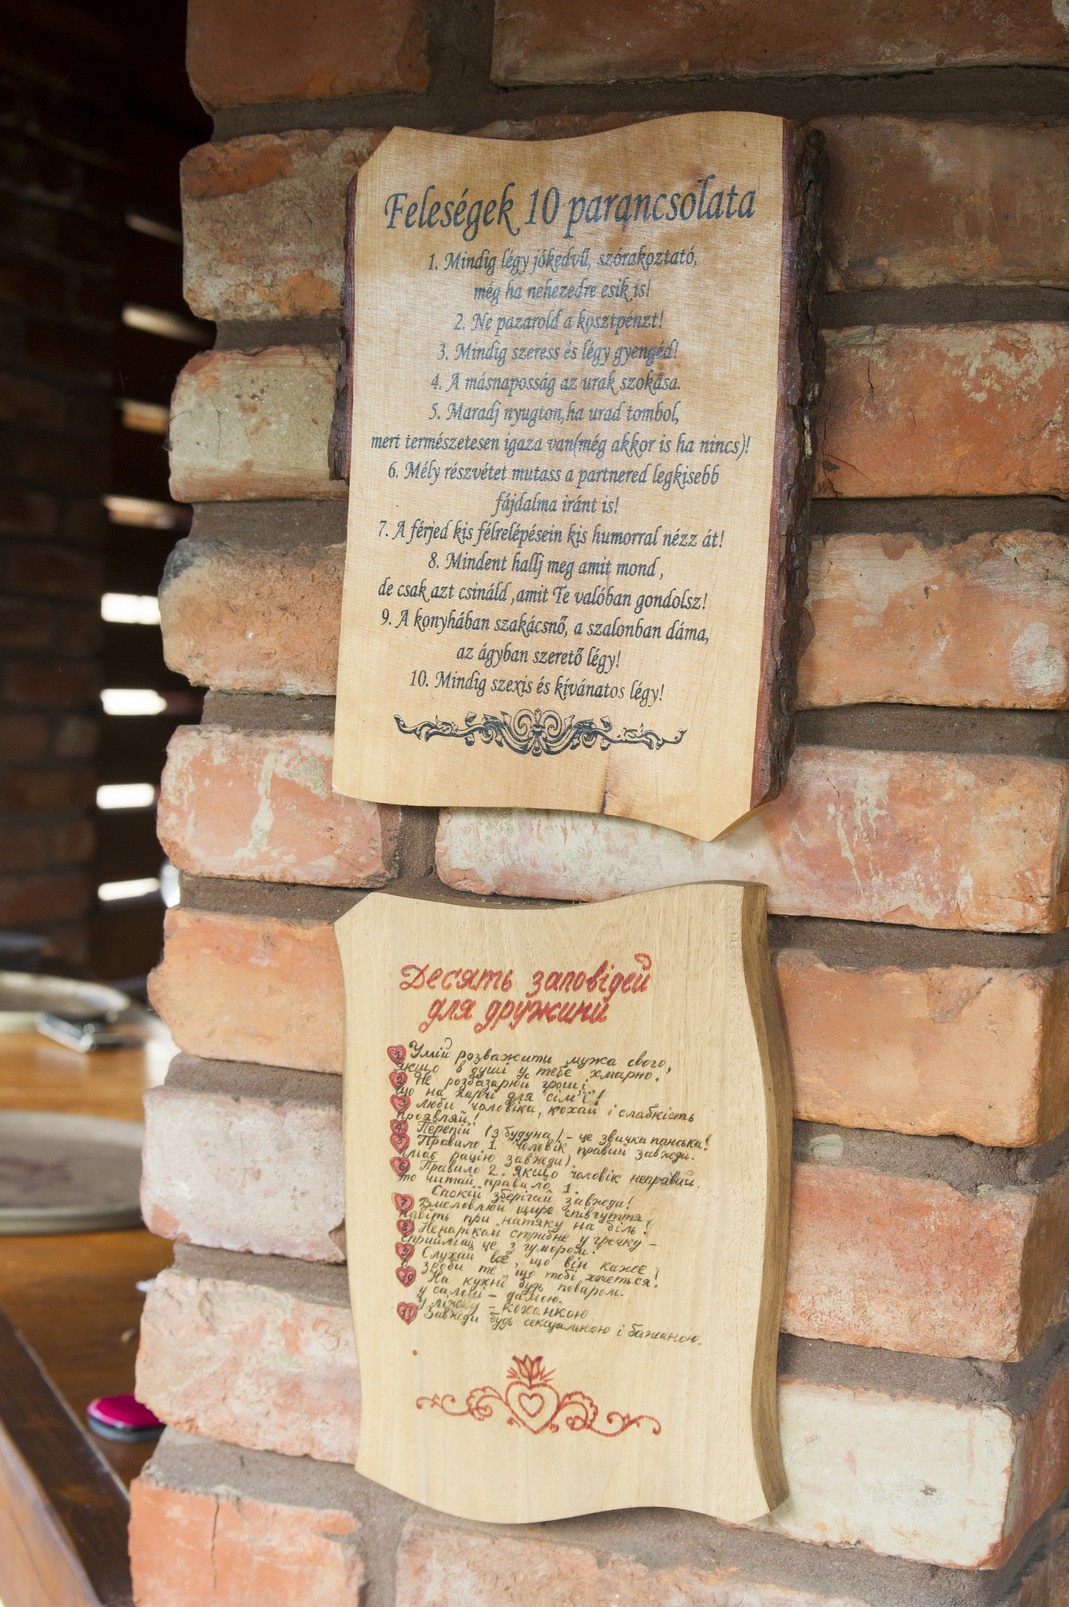 Feleségek 10 parancsolata
1. Mindig légy jókedvű, szórakoztató,
még ha nehezedre esik is!
2. Ne pazarold a kosztpénzt!
3. Mindig szeress és légy gyengéd!
4. A másnaposság az urak szokása.
5. Maradj nyugton,ha urad tombol,
mert természetesen igaza van(még akkor is ha nincs)!
6. Mély részvétet mutass a partnered legkisebb
fájdalma iránt is!
7. A férjed kis félrelépésein kis humorral nézz át!
8. Mindent hallj meg amit mond ,
de csak azt csináld ,amit Te valóban gondolsz!
9. A konyhában szakácsnő, a szalonban dáma,
az ágyban szerető légy!
10. Mindig szexis és kívánatos légy!
Десять заповідей
для дружини
1 Умій розважити мужа свого,
якщо в душі у тебе хмарно.
2 Не розбазарюй гроші,
що на харчі для сім'ї!
3 Люби чоловіка, кохай і слабкість
проявляй!
4 Перепій (з будуна) - це звичка панська!
5 Правило 1. Чоловік правий завжди.
(має рацію завжди).
6 Правило 2. Якщо чоловік неправий,
то читай правило 1.
Спокій зберігай завжди!
7 Висловлюй щире співчуття
навіть при натяку на біль!
8 Ненароком стрибне у гречку -
сприймай це з гумором.
9 Слухай все, що він каже
зроби те, що тобі хочеться!
10 На кухні будь поваром.
у салоні - дамою.
У ліжку - коханкою
11 Завжди будь сексуальною і бажаною.